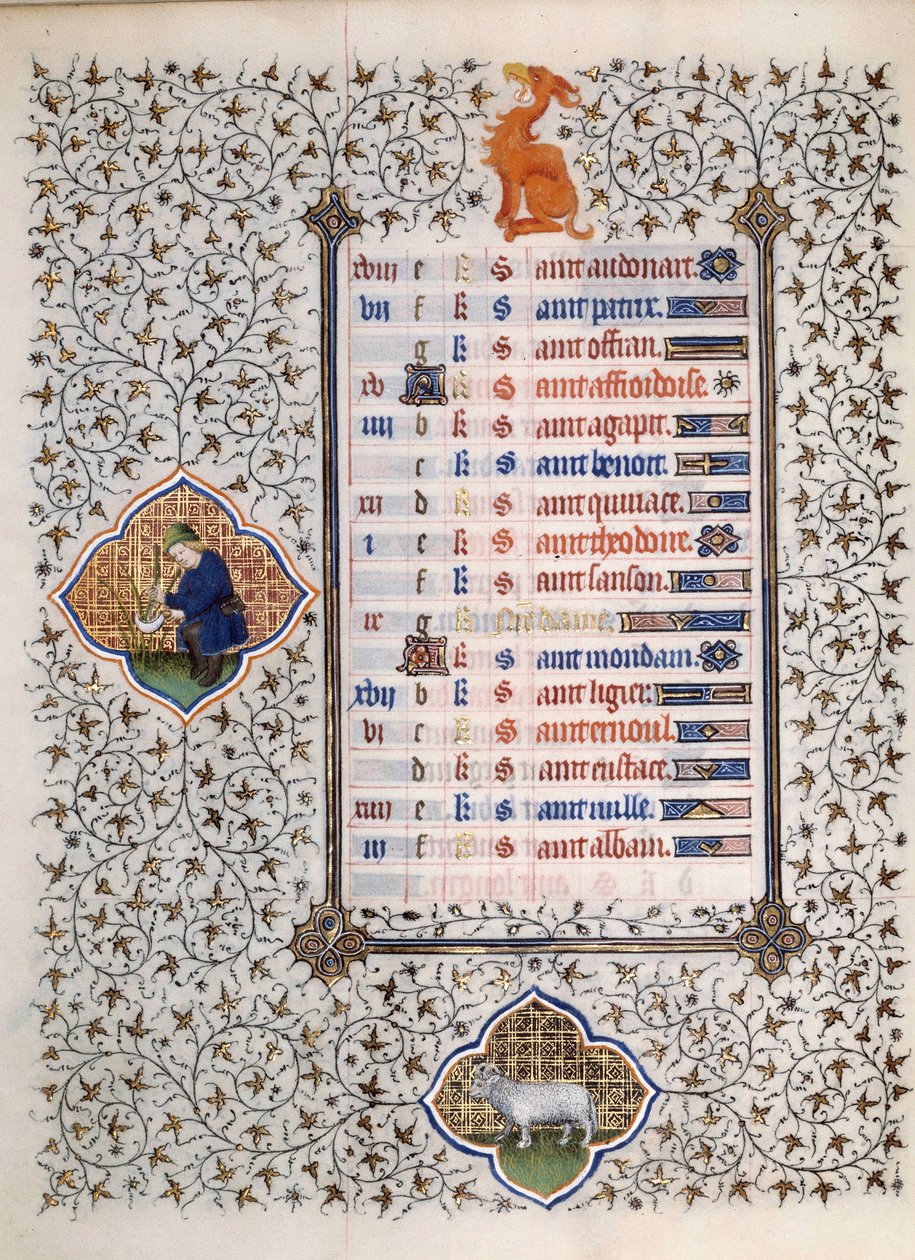 xviij e k Saint audouart.
vij f k Saint patrix.
g k Saint offran.
xv A k Saint affrodoise.
iiij b k Saint agapit.
c k Saint benoit.
xij d k Saint quiriace.
i e k Saint theodore.
f k Saint sanson.
ix g k Nr̄e dame.
A k Saint mondain.
xvij b k Saint ligier.
vj c k Saint ernoul.
d k Saint eustace.
xiiij e k Saint rulle.
iij f k Saint albain.